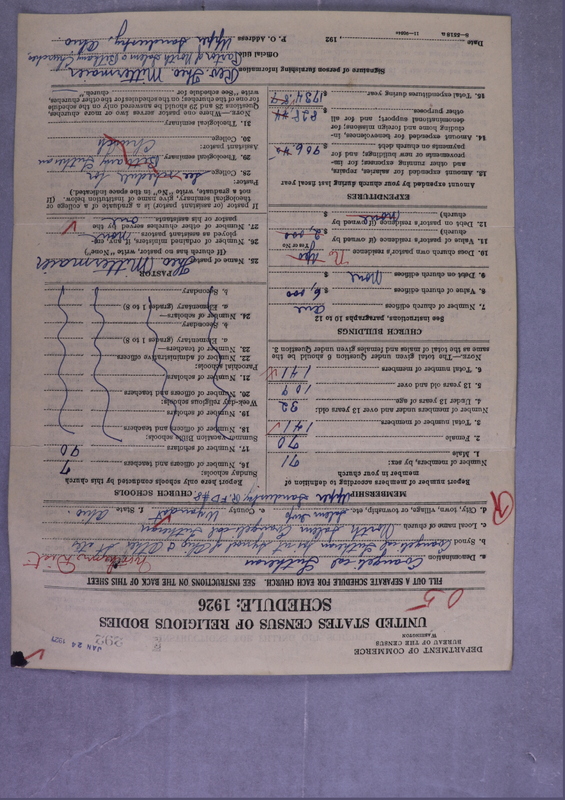 DEPARTMENT OF COMMERCE
BUREAU OF THE CENSUS
WASHINGTON
JAN 24 1927
UNITED STATES CENSUS OF RELIGIOUS BODIES
SCHEDULE: 1926
FILL OUT A SEPARATE SCHEDULE FOR EACH CHURCH. SEE INSTRUCTIONS ON THE BACK OF THIS SHEET
a. Denomination Evangelical Lutheran
b. Synod Evangelical Lutheran Joint Synod of Ohio & Other States
c. Local name of church North Salem Evangelical Lutheran
d. City, town, village, or township, etc. Salem Twp e. County Wyandot f. State Ohio.
Upper Sandusky R.F.D. #8
MEMBERSHIP
Report number of members according to definition of member in your church
Number of members, by sex:
1. Male 71
2. Female 70
3. Total number of members 141
Number of members under and over 13 years old:
4. Under 13 years of age 32
5. 13 years old and over 109
6. Total number of members 141
NOTE.—The total given under Question 6 should be the same as the total of males and females given under Question 3.
CHURCH BUILDINGS
See instructions, paragraphs 10 to 12
7. Number of church edifices one
8. Value of church edifices $ 6,000
9. Debt on church edifices $ None
10. Does church own pastor's residence
Yes or No
11. Value of pastor's residence (if owned by church) $ 2,000
12. Debt on pastor's residence (if owned by church) $ None
EXPENDITURES
Amount expended by your church during last fiscal year
13. Amount expended for salaries, repairs, and other running expenses; for improvements or new buildings; and for payments on church debt $ 906.40
14. Amount expended for benevolences, including home and foreign missions; for denominational support; and for all other purposes $ 828.44
15. Total expenditures during year $ 1734.84
CHURCH SCHOOLS
Report here only schools conducted by this church
Sunday schools:
16. Number of officers and teachers 7
17. Number of scholars 90
Summer vacation Bible schools:
18. Number of officers and teachers
19. Number of scholars
Week-day religious schools:
20. Number of officers and teachers
21. Number of scholars
Parochial schools:
22. Number of administrative officers
23. Number of teachers—
a. Elementary (grades 1 to 8)
b. Secondary
24. Number of scholars—
a. Elementary (grades 1 to 8)
b. Secondary
PASTOR
25. Name of pastor Theo Mittermaier
(If church has no pastor, write "None")
26. Number of ordained ministers, if any, employed as assistant pastors None
27. Number of other churches served by the pastor or his assistants one
If pastor or assistant pastor is a graduate of a college or theological seminary, give name of institution below. (If not a graduate, write "No" in the space indicated.)
Pastor:
28. College See schedule for
29. Theological seminary Bethany Lutheran
Assistant pastor: Church
30. College
31. Theological seminary
NOTE.—Where one pastor serves two or more churches, Questions 28 and 29 should be answered only on the schedule for one of the churches; on the schedules for the other churches, write "See schedule for church."
Signature of person furnishing information Rev. Theo Mittermaier
Official title Pastor of North Salem & Bethany Churches
P. O. Address Upper Sandusky, Ohio.
Date , 192